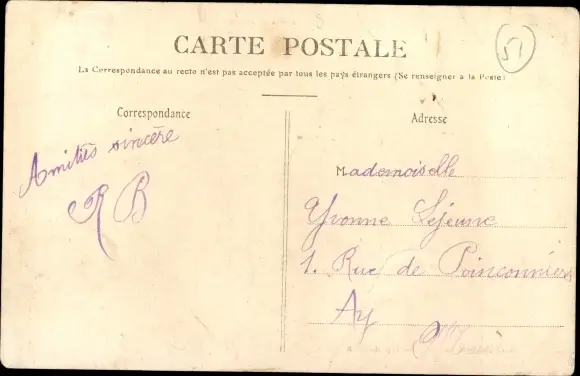 CARTE POSTALE
51
La Correspondance au recto n'est pas acceptée par tous les pays étrangers (Se renseigner à la Poste)
Correspondance
Amitiés sincère
R B
Adresse
Mademoiselle
Yvonne Lejeune
1. Rue de Poinconniers
Ay